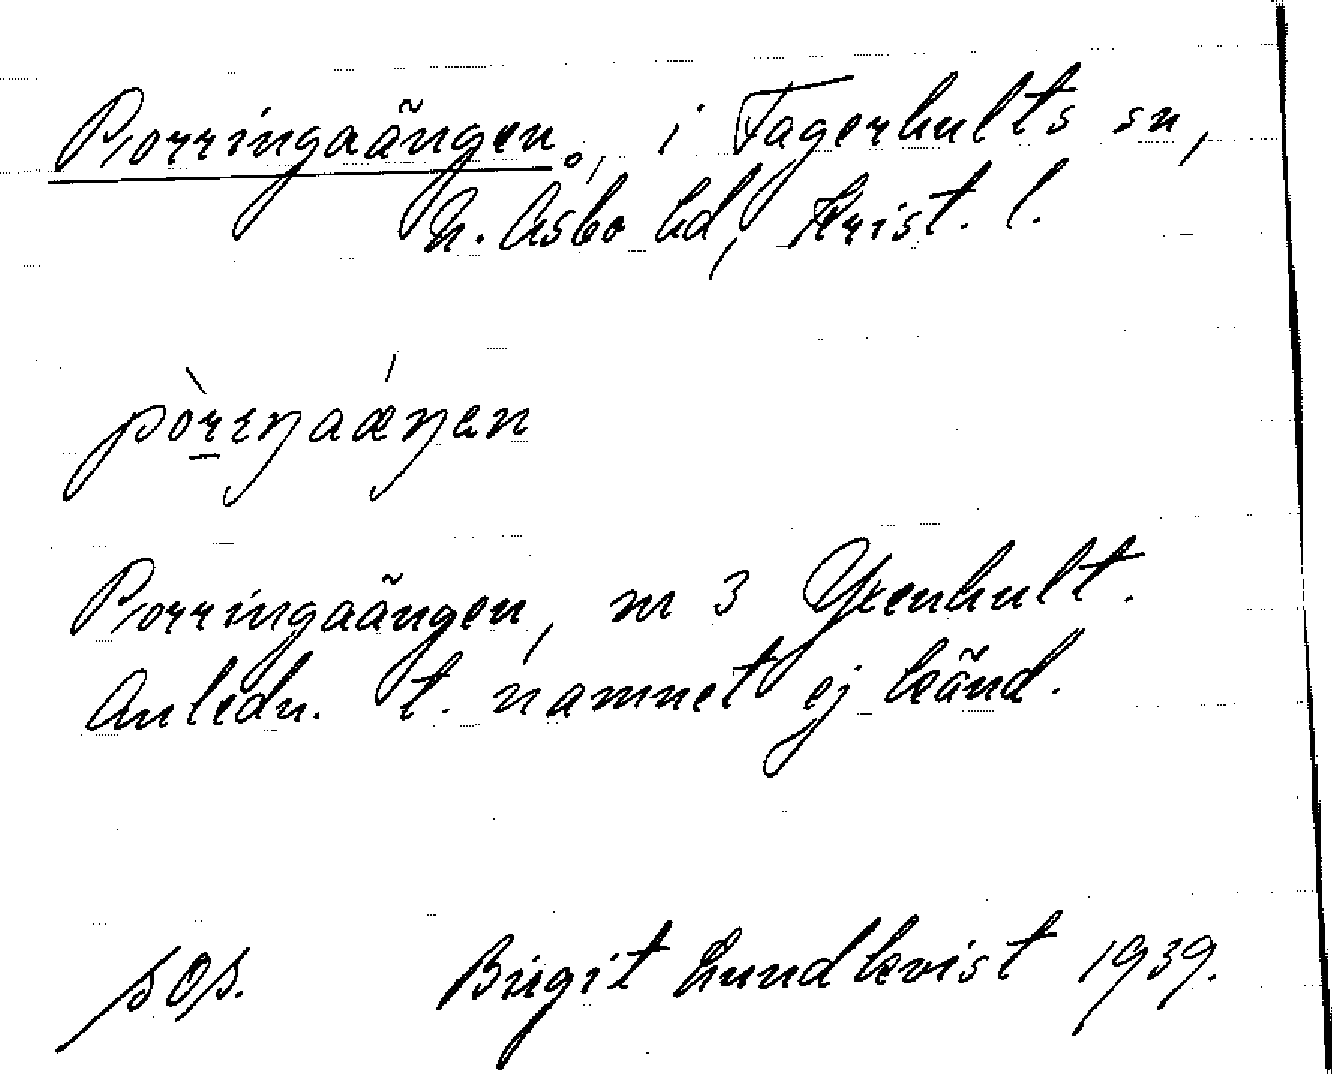 Porringaängen, i Fagerhults sn,
N. Åsbo hd, Krist. l.
pòrıŋaǽŋen
Porringaängen, m 3 Ykenhult.
Anledn. t. namnet ej känd.
Birgit Lundkvist 1939.